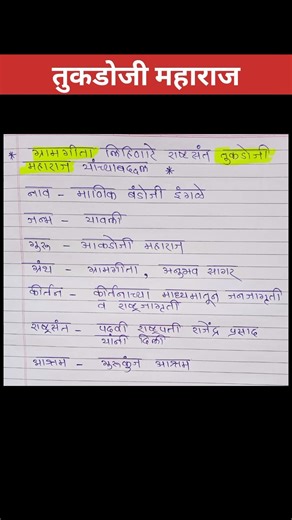 तुकडोजी महाराज
* ग्रामगीता लिहिणारे राष्ट्रसंत तुकडोजी
महाराज यांच्याबद्दल *
नाव - माणिक बंडोजी इंगळे
जन्म - यावली
गुरू - आकडोजी महाराज
ग्रंथ - ग्रामगीता, अनुभव सागर
कीर्तन - कीर्तनाच्या माध्यमातून जनजागृती
व राष्ट्रजागृती
राष्ट्रसंत - पदवी राष्ट्रपती राजेंद्र प्रसाद
यांनी दिली
आश्रम - गुरूकुंज आश्रम